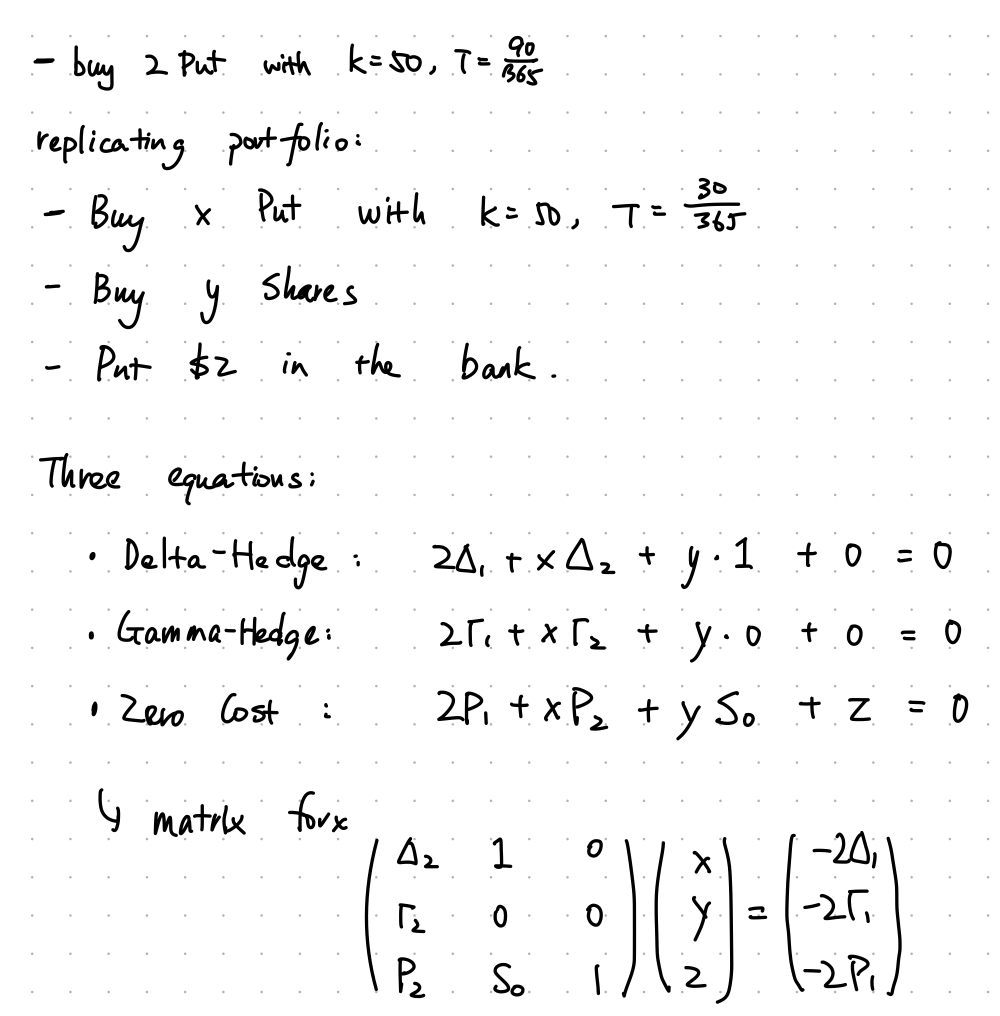 - buy 2 Put with k=50, T= 90/365
replicating portfolio:
- Buy x Put with k=50, T= 30/365
- Buy y Shares
- Put $z in the bank.
Three equations:
• Delta-Hedge : 2Δ₁ + xΔ₂ + y·1 + 0 = 0
• Gamma-Hedge: 2Γ₁ + xΓ₂ + y·0 + 0 = 0
• Zero Cost : 2P₁ + xP₂ + yS₀ + z = 0
↳ matrix forx
(Δ₂ 1 0) (x) = (-2Δ₁)
(Γ₂ 0 0) (y) = (-2Γ₁)
(P₂ S₀ 1) (z) = (-2P₁)